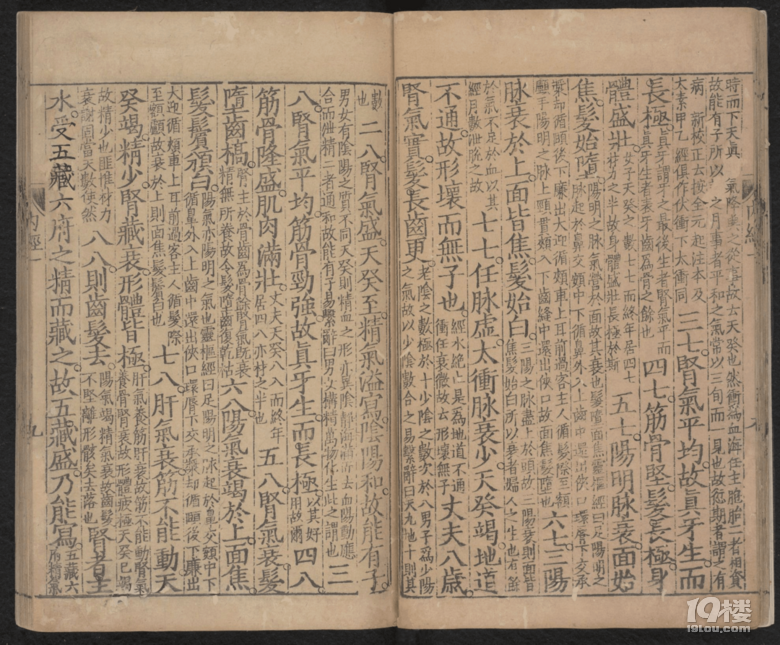 時而下天真氣降與之從事故云天癸也然衝為血海任主胞胎二者相資
故能有子所以謂之月事者平和之氣常以三旬而一見也故愆期者謂之有
病 新校正云按全元起注本及太素甲乙經俱作伏衝下太衝同 三七腎氣平均故真牙生而
長極 真牙謂牙之最後生者腎氣平而真牙生者表牙齒為骨之餘也 四七筋骨堅髮長極身
體盛壯 女子天癸之數七七而終年居四七材力之半故身體盛壯長極於斯 五七陽明脉衰面始
焦髮始墮 陽明之脉氣營於面故其衰也髮墮面焦靈樞經曰足陽明之脉起於鼻交頞中下循鼻外入上齒中還出俠口環脣下交承
漿却循頤後下廉出大迎循頰車上耳前過客主人循髮際至額顱手陽明之脉上頸貫頰入下齒縫中還出俠口故面焦髮墮也 六七三陽
脉衰於上面皆焦髮始白 三陽之脉盡上於頭故三陽衰則面皆焦髮始白所以衰者婦人之生也有餘
於氣不足於血以其經月數泄脫之故 七七任脉虛太衝脉衰少天癸竭地道
不通故形壞而無子也 經水絕止是為地道不通衝任衰微故云形壞無子 丈夫八歲
腎氣實髮長齒更 老陰之數極於十少陰之數次於八男子為少陽之氣故以少陰數合之易繫辭曰天九地十則其
內經一
數也 二八腎氣盛天癸至精氣溢寫陰陽和故能有子
男女有陰陽之質不同天癸則精血之形亦異陰靜海滿而去血陽動應合而泄精二者通和故能有子易繫辭曰男女構精萬物化生此之謂也 三
八腎氣平均筋骨勁強故真牙生而長極 以其好用故爾 四八
筋骨隆盛肌肉滿壯 丈夫天癸八八而終年居四八亦材之半也 五八腎氣衰髮
墮齒槁 腎主於骨齒為骨餘腎氣既衰精無所養故令髮墮齒復乾枯 六八陽氣衰竭於上面焦
髮鬢頒白 陽氣亦陽明之氣也靈樞經曰足陽明之脉起於鼻交頞中下循鼻外入上齒中還出俠口環脣下交承漿却循頤後下廉出
大迎循頰車上耳前過客主人循髮際至額顱故衰於上則面焦髮鬢白也 七八肝氣衰筋不能動天
癸竭精少腎藏衰形體皆極 肝氣養筋肝衰故筋不能動腎氣養骨腎衰故形體疲極天癸已竭
故精少也匪惟材力衰謝固當天數使然 八八則齒髮去 陽氣竭精氣衰故齒髮不堅離形骸矣去落也 腎者主
水受五藏六府之精而藏之故五藏盛乃能寫 五藏六府精氣
內經一
九
19楼
19lou.com